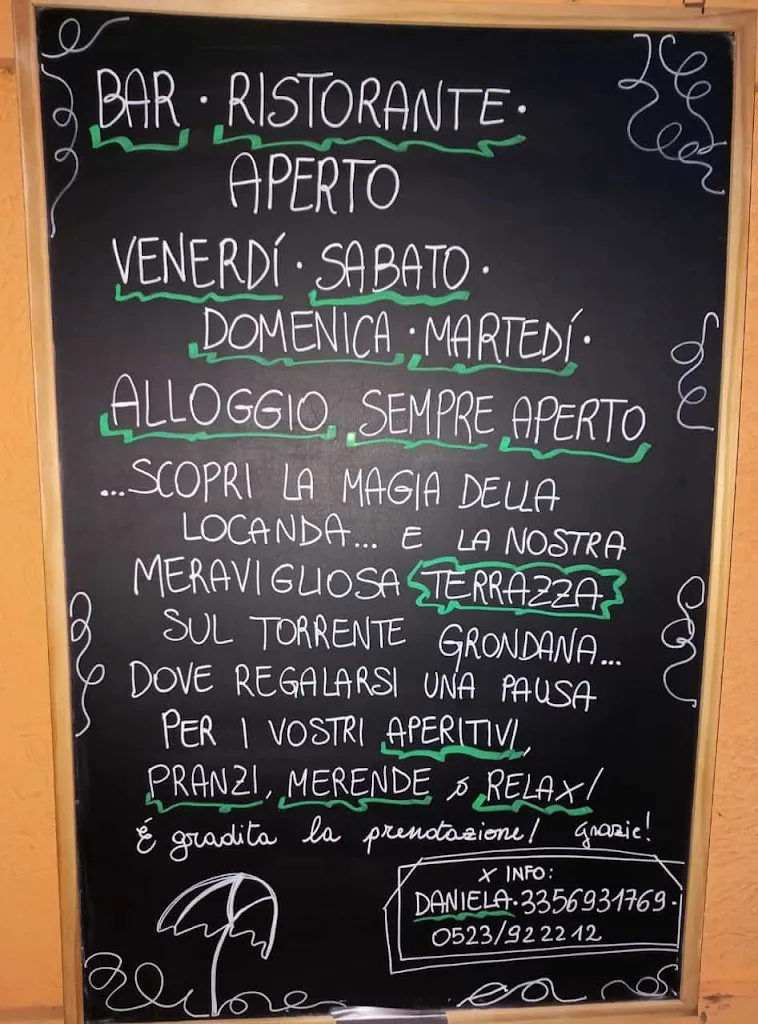 BAR · RISTORANTE ·
APERTO
VENERDÍ · SABATO ·
DOMENICA · MARTEDÍ ·
ALLOGGIO SEMPRE APERTO
...SCOPRI LA MAGIA DELLA
LOCANDA... E LA NOSTRA
MERAVIGLIOSA TERRAZZA
SUL TORRENTE GRONDANA...
DOVE REGALARSI UNA PAUSA
PER I VOSTRI APERITIVI,
PRANZI, MERENDE o RELAX!
É gradita la prenotazione! Grazie!
X INFO:
DANIELA · 3356931769 ·
0523/922212